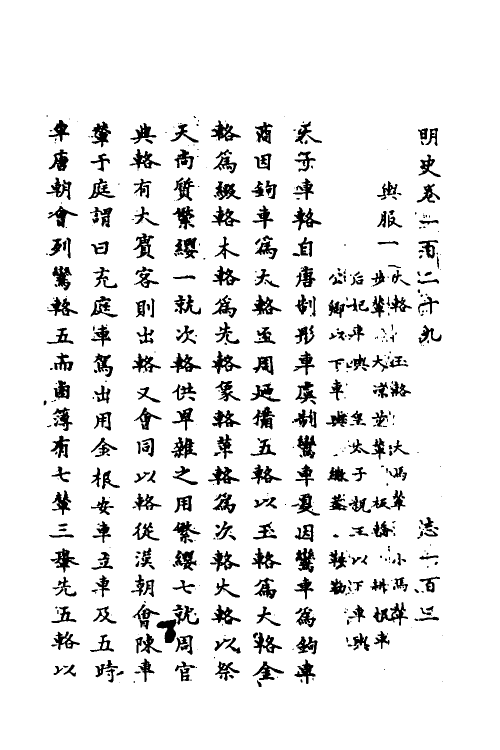 明史卷一百二十九 志一百三
輿服一
大輅 玉輅 大馬輦 小馬輦
步輦 大涼步輦 板轎 耕根車
后妃車輿 皇太子親王以下車輿
公卿以下車輿 繖蓋 鞍勒
天子車輅自唐制彤車虞制鸞車夏因鸞車爲鉤車
商因鉤車爲大輅至周迺備五輅以玉輅爲大輅金
輅爲綴輅木輅爲先輅象輅革輅爲次輅大輅以祭
天尚質繁纓一就次輅供卑雜之用繁纓七就周官
典輅有大賓客則出輅又會同以輅從漢朝會陳車
輦于庭謂曰充庭車駕出用金根安車立車及五時
車唐朝會列鸞輅五而鹵簿有七輦三轝先五輅以